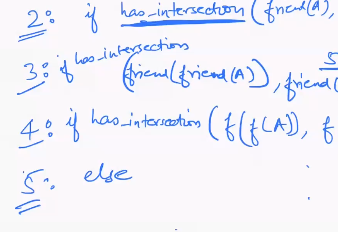 2: if has_intersection (friend(A),
3: if has_intersections (friend(friend(A)), friend(
4: if has_intersection (f(f(A)), f
5: else